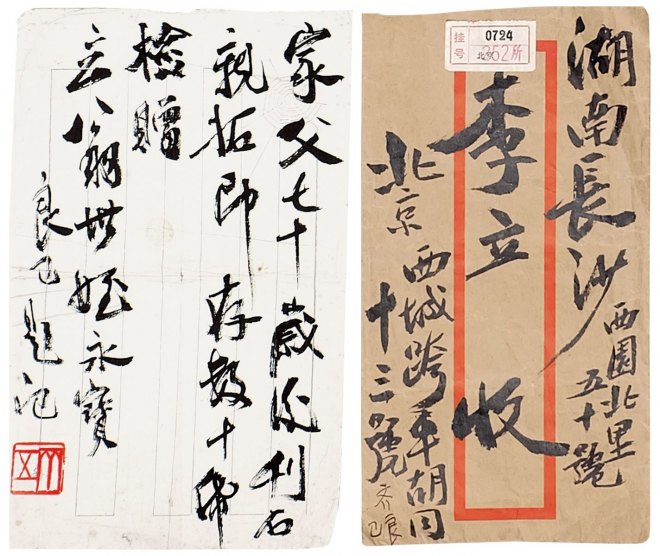 家父七十歲後刊石
親拓印存數十
檢贈
立世姪永寶
良已題記
挂号
0724
北京
352所
湖南長沙
西園北里
五十號
李立收
北京西城跨车胡同
十三號
齐良已